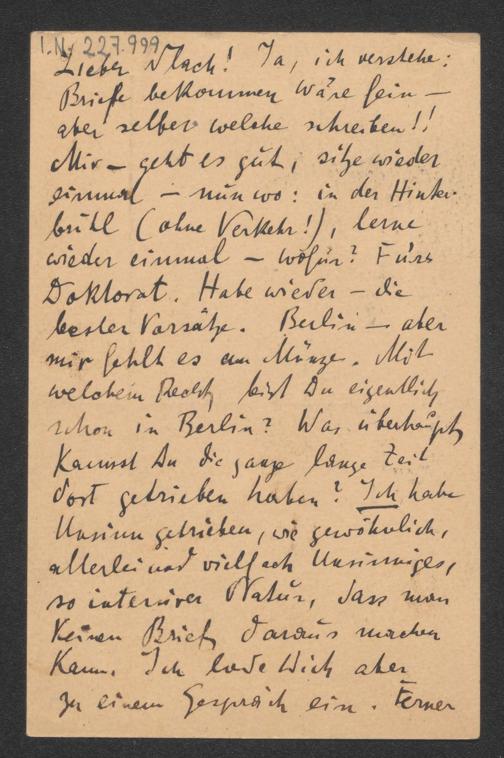 I.N. 227.999
Lieber Vlach! Ja, ich verstehe:
Briefe bekommen wäre fein —
aber selber welche schreiben!!
Mir — geht es gut, sitze wieder
einmal — nun wo: in der Hinter-
brühl (ohne Verkehr!), lerne
wieder einmal — wofür? Fürs
Doktorat. Habe wieder — die
besten Vorsätze. Berlin — aber
mir fehlt es an Münze. Mit
welchem Recht bist Du eigentlich
schon in Berlin? Was überhaupt
kannst Du die ganze lange Zeit
dort getrieben haben? Ich habe
Unsinn getrieben, wie gewöhnlich,
allerlei und vielfach Unsinniges,
so interner Natur, dass man
keinen Brief daraus machen
kann. Ich lade Dich aber
zu einem Gespräch ein. Ferner